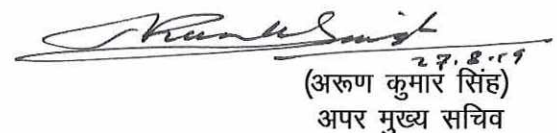 27.8.19
(अरूण कुमार सिंह)
अपर मुख्य सचिव